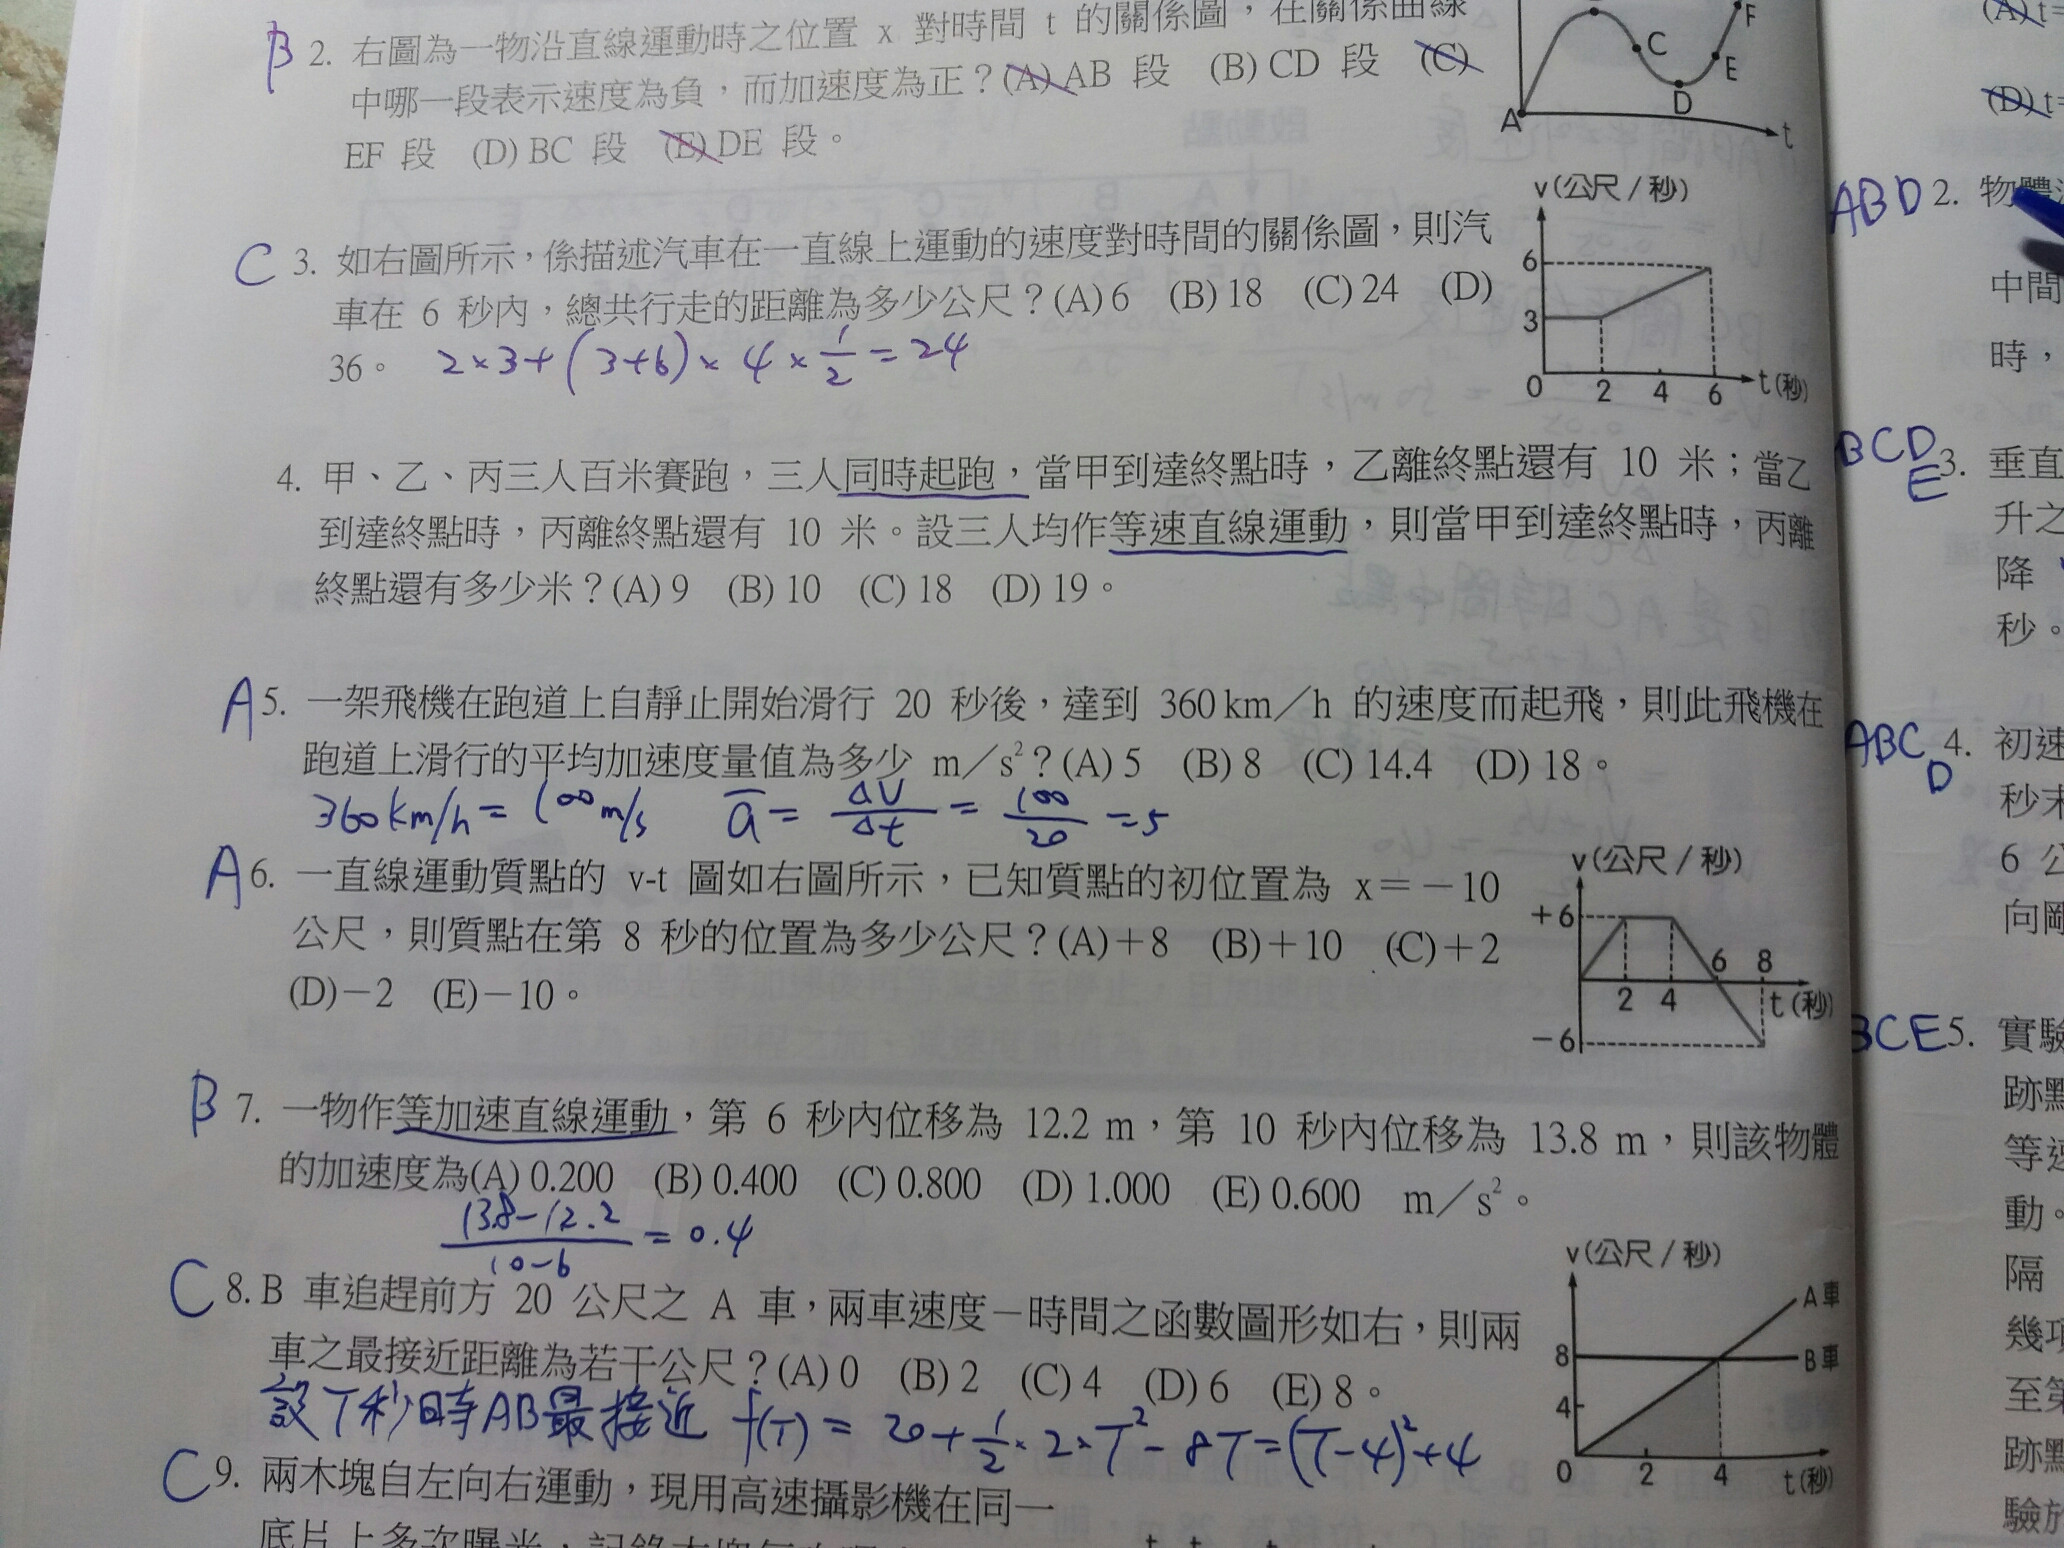 B 2. 右圖為一物沿直線運動時之位置 x 對時間 t 的關係圖，在關係曲線
中哪一段表示速度為負，而加速度為正？(A) AB 段 (B) CD 段 (C)
EF 段 (D) BC 段 (E) DE 段。
A C D E F t
C 3. 如右圖所示，係描述汽車在一直線上運動的速度對時間的關係圖，則汽
車在 6 秒內，總共行走的距離為多少公尺？(A) 6 (B) 18 (C) 24 (D)
36。 2×3+(3+6)×4×1/2=24
v(公尺/秒)
6
3
0 2 4 6 t(秒)
4. 甲、乙、丙三人百米賽跑，三人同時起跑，當甲到達終點時，乙離終點還有 10 米；當乙
到達終點時，丙離終點還有 10 米。設三人均作等速直線運動，則當甲到達終點時，丙離
終點還有多少米？(A) 9 (B) 10 (C) 18 (D) 19。
A 5. 一架飛機在跑道上自靜止開始滑行 20 秒後，達到 360 km／h 的速度而起飛，則此飛機在
跑道上滑行的平均加速度量值為多少 m／s²？(A) 5 (B) 8 (C) 14.4 (D) 18。
360km/h=100m/s a̅=ΔV/Δt=100/20=5
A 6. 一直線運動質點的 v-t 圖如右圖所示，已知質點的初位置為 x＝－10
公尺，則質點在第 8 秒的位置為多少公尺？(A)＋8 (B)＋10 (C)＋2
(D)－2 (E)－10。
v(公尺/秒)
+6
6 8
2 4 t(秒)
-6
B 7. 一物作等加速直線運動，第 6 秒內位移為 12.2 m，第 10 秒內位移為 13.8 m，則該物體
的加速度為(A) 0.200 (B) 0.400 (C) 0.800 (D) 1.000 (E) 0.600 m／s²。
13.8-12.2/10-6=0.4
C 8. B 車追趕前方 20 公尺之 A 車，兩車速度－時間之函數圖形如右，則兩
車之最接近距離為若干公尺？(A) 0 (B) 2 (C) 4 (D) 6 (E) 8。
設T秒時AB最接近 f(T)=20+1/2×2×T²-8T=(T-4)²+4
v(公尺/秒)
A車
8 B車
4
0 2 4 t(秒)
C 9. 兩木塊自左向右運動，現用高速攝影機在同一
(A) t=
(D) t=
ABD 2. 物體
中間
時，
BCDE 3. 垂直
升之
降
秒。
ABCD 4. 初速
秒末
6 公
向
BCE 5. 實驗
跡點
等速
動。
隔
幾項
至第
跡點
驗於